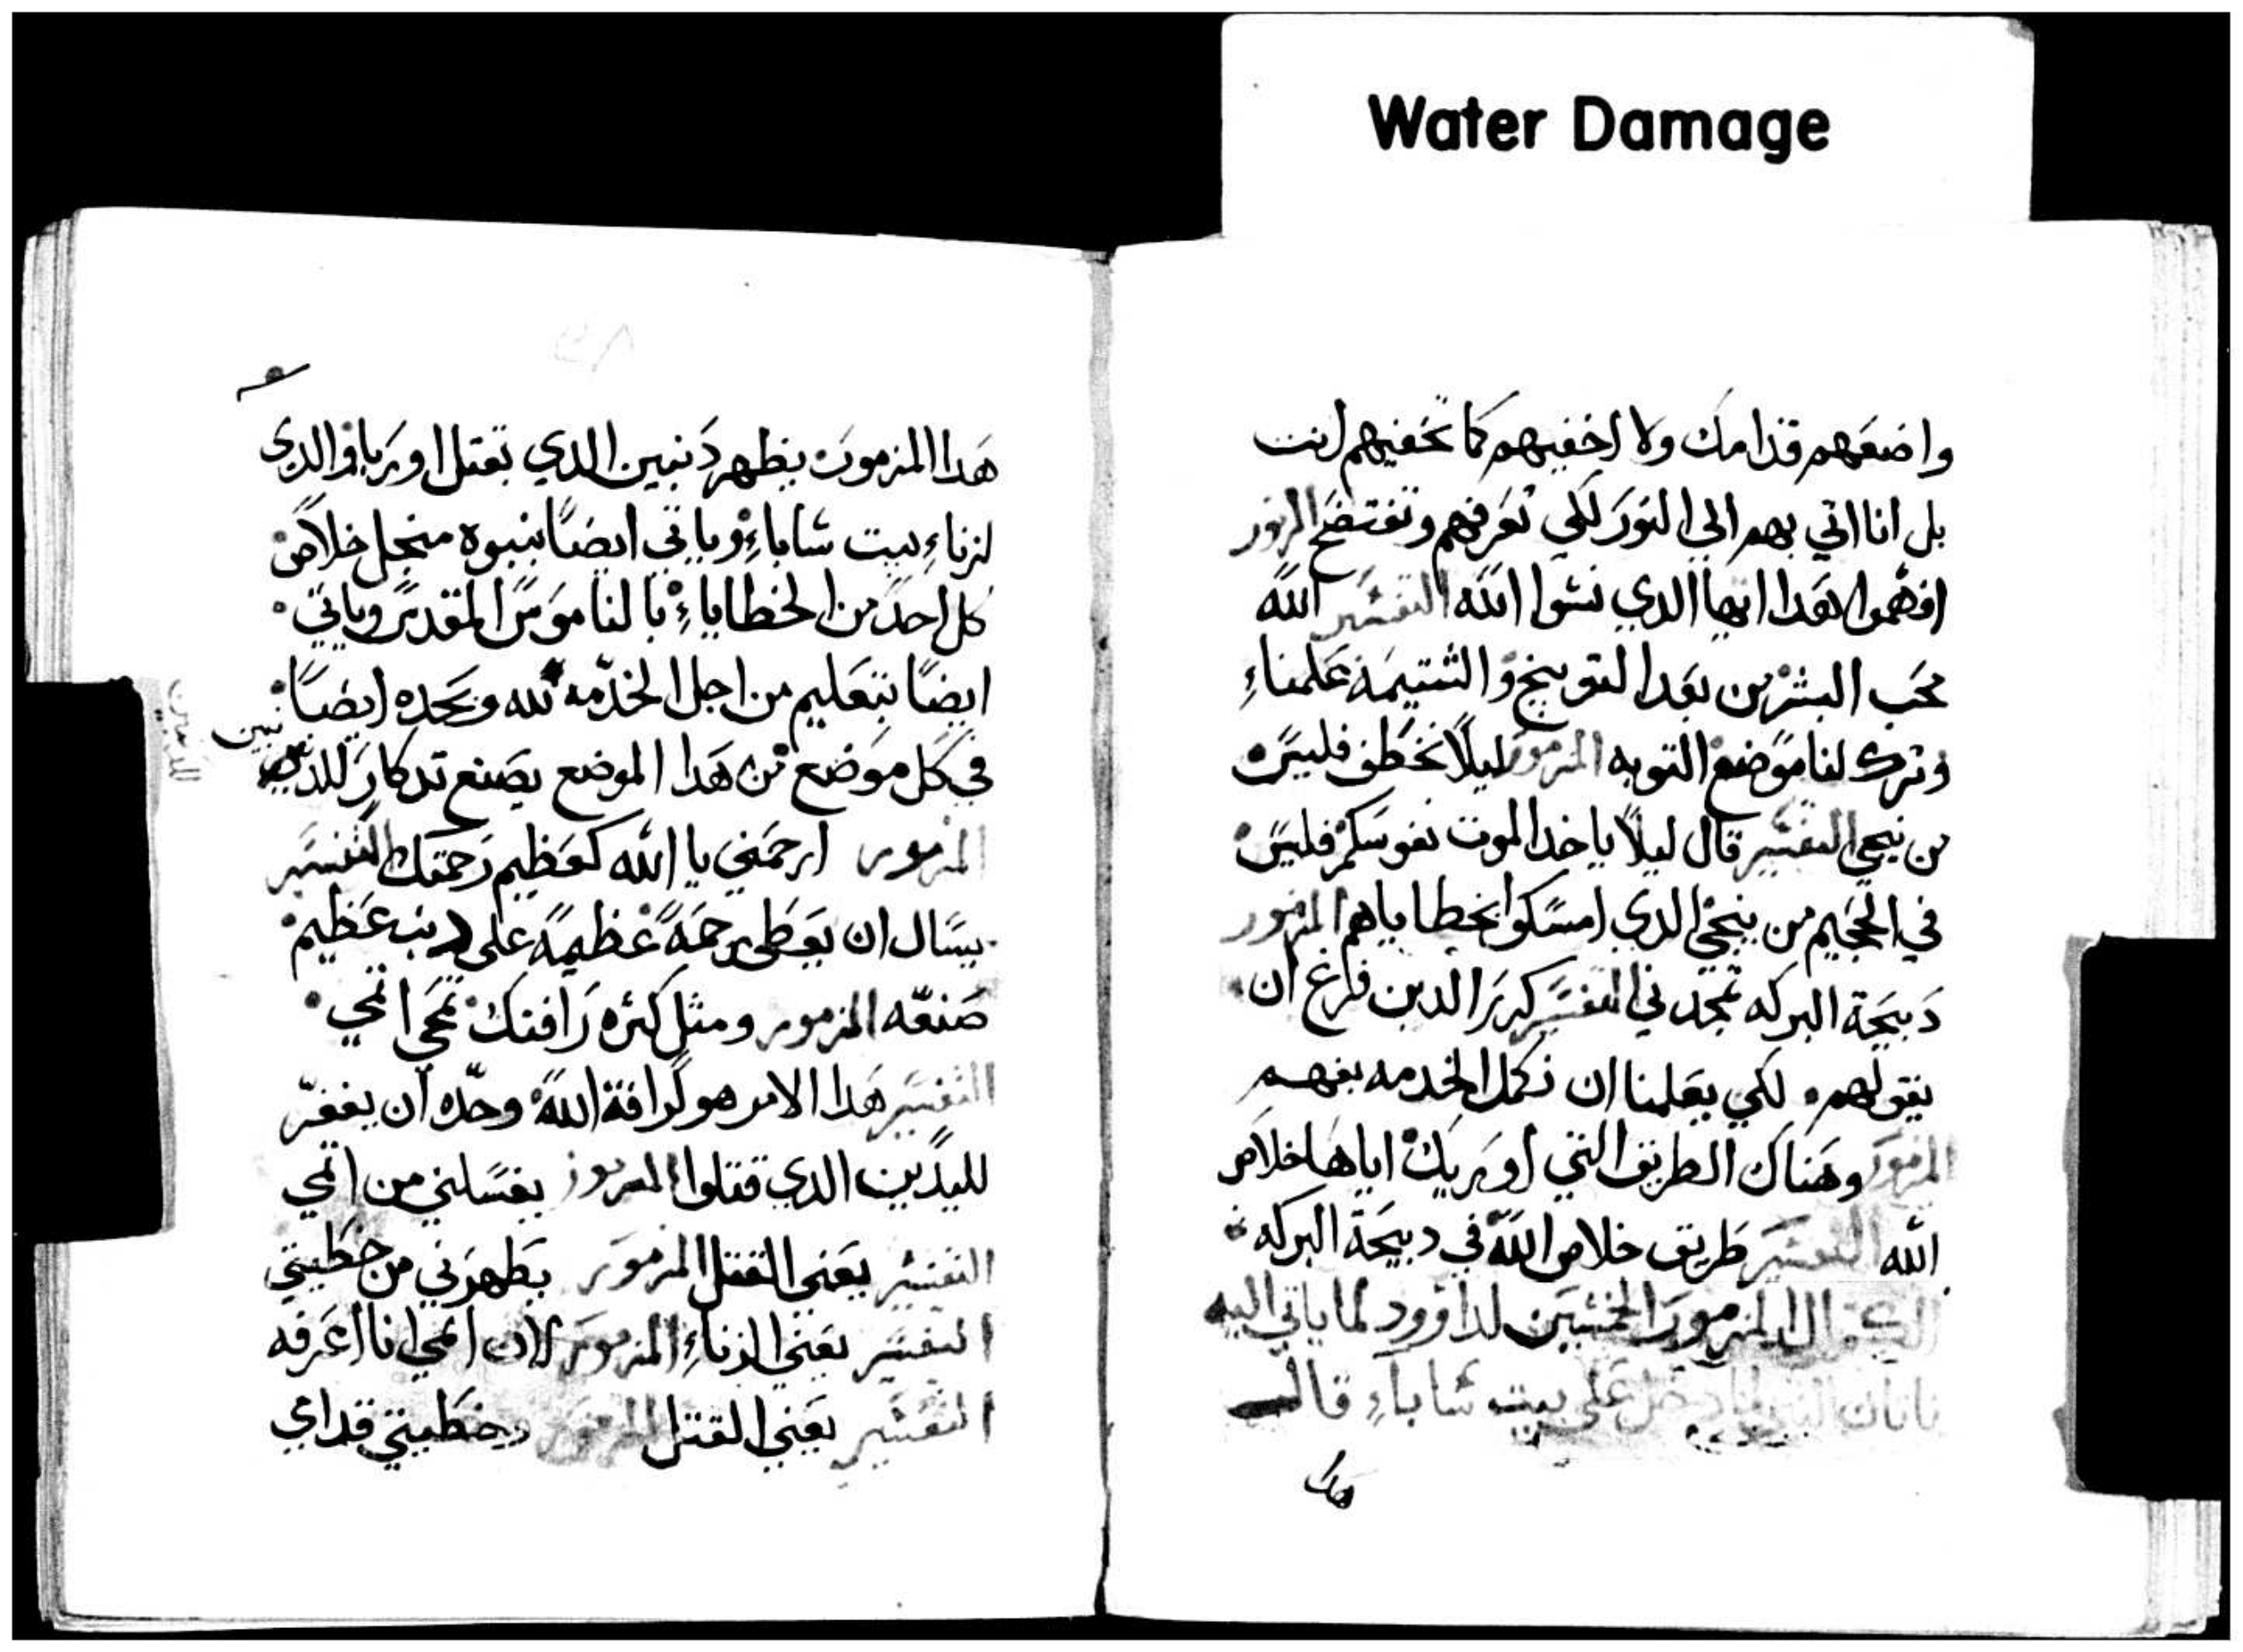 Water Damage
واضعهم قدامك ولا اخفيهم كما تخفيهم انت
بل انا اتي بهم الي النور لكي تعرفهم وتفتضح المزمور
افهموا هدا ايها الدي نسوا الله التفسير الله
محب البشر من بعد التوبيخ والشتيمة علمناء
وترك لنا موضع التوبه المزمور ليلا تخطف فليس
من نجي التفسير قال ليلا ياخد الموت نفوسكم فليس
في الجحيم من ينجي الدي امسكوا بخطاياهم المزمور
دبيحة البركه تمجدني التفسير كرر الدين فرغ ان
يقولهم لكي يعلمنا ان نكمل الخدمه بفهم
المزمور وهناك الطريق التي اوريك اياها خلاص
الله التفسير طريق خلاص الله في دبيحة البركه
المزمور الخمسين لداوود لما ياتي اليه
ناتان علي بيت شاباء قال
هدا
هدا المزمور يظهر دنبين الدي بقتل اوريا والدي
لزناء بيت شاباء وياتي ايضا بنبوه منجل خلاص
كل احد من الخطاياء بالناموس المقدس وياتي
ايضا بتعليم من اجل الخدمه لله ويجده ايضا
في كل موضع من هدا الموضع يصنع تدكار للد نبين
المزمور ارحمني يا الله كعظيم رحمتك التفسير
يسال ان يعطي رحمة عظيمة علي دنب عظيم
صنعه المزمور ومثل كثره رافتك تمحي اتمي
التفسير هدا الامر هو لرافة الله وحده ان يغفر
لليدين الدي قتلوا المزمور يغسلني من اتمي
التفسير يعني القتل المزمور يطهرني من خطيتي
التفسير يعني الزناء المزمور لان اتمي انا اعرفه
التفسير يعني القتل المزمور وخطيتي قدامي